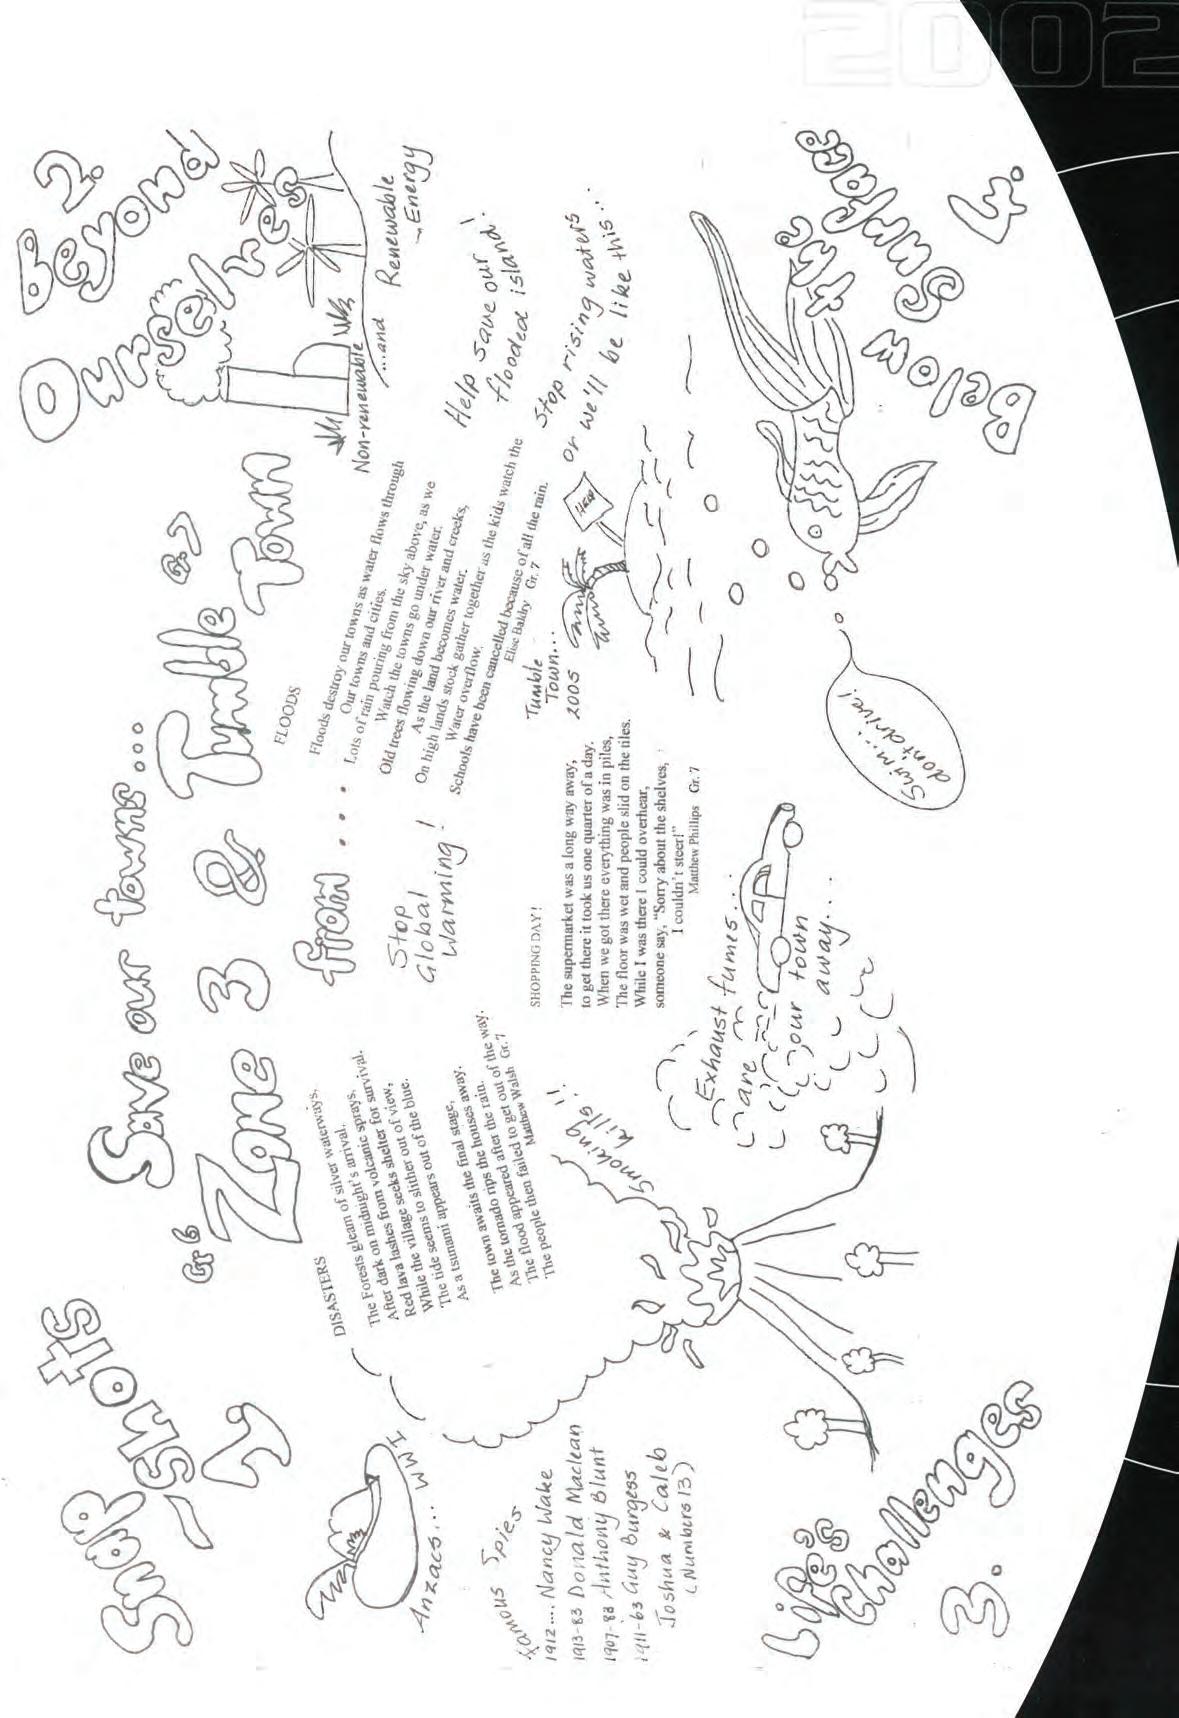 2002
Snap
-shots
1.
Save our towns...
Gr 6
Zone 3 & Tumble
Gr. 7
Town
from ....
Beyond 2.
Ourselves
Non-renewable
...and
Renewable
Energy
Anzacs... WWI
Famous Spies
1912.... Nancy Wake
1913-83 Donald Maclean
1907-83 Anthony Blunt
1911-63 Guy Burgess
Joshua & Caleb
(Numbers 13)
DISASTERS
The Forests gleam of silver waterways,
After dark on midnight's arrival.
Red lava lashes from volcanic sprays,
While the village seeks shelter for survival.
The tide seems to slither out of view,
As a tsunami appears out of the blue.
The town awaits the final stage,
As the tornado rips the houses away.
The flood appeared after the rain.
The people then failed to get out of the way.
Matthew Walsh Gr.7
Stop
Global
Warming!
FLOODS
Floods destroy our towns as water flows through
Our towns and cities.
Lots of rain pouring from the sky above, as we
Watch the towns go under water.
Old trees flowing down our river and creeks,
As the land becomes water.
On high lands stock gather together as the kids watch the
Water overflow.
Schools have been cancelled because of all the rain.
Elise Baldry Gr. 7
Help save our
flooded island!
Stop rising waters
or we'll be like this..
SHOPPING DAY!
The supermarket was a long way away,
to get there it took us one quarter of a day.
When we got there everything was in piles,
The floor was wet and people slid on the tiles.
While I was there I could overhear,
someone say, "Sorry about the shelves,
I couldn't steer!"
Matthew Phillips Gr. 7
Tumble
Town...
2005
HELP
Smoking
kills!!
Exhaust fumes...
are
our town
away...
Swim...
don't drive!
Life's
Challenges
3.
Below the
Surface
4.